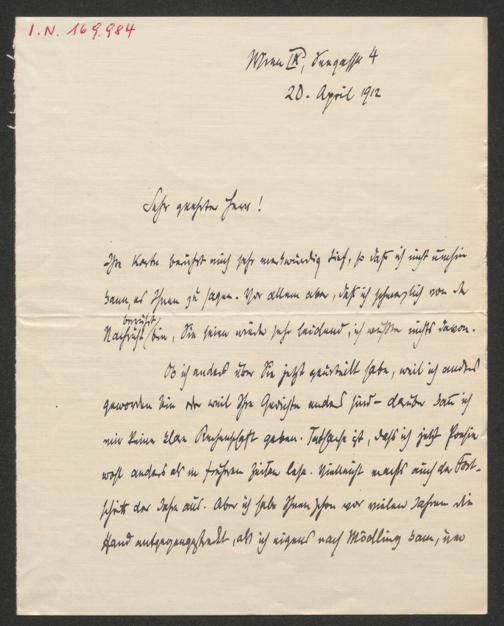 I.N. 169.984
Wien IX, Seegasse 4
20. April 1912
Sehr geehrter Herr!
Ihre Karte berührt mich sehr merkwürdig tief, so daß ich nicht umhin
kann, es Ihnen zu sagen. Vor allem aber, daß ich schmerzlich von der
Nachricht berührt bin, Sie seien wieder sehr leidend, ich wußte nichts davon.
Ob ich anders über Sie jetzt geurteilt habe, weil ich anders
geworden bin oder weil Ihre Gedichte anders sind – darüber kann ich
mir keine klare Rechenschaft geben. Tatsache ist, daß ich jetzt Poesie
wohl anders als in früheren Zeiten lese. Vielleicht macht's auch der Fort-
schritt der Jahre aus. Aber ich habe Ihnen schon vor vielen Jahren die
Hand entgegengestreckt, als ich eigens nach Mödling kam, um